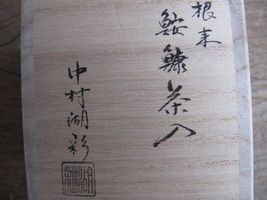 根来
鮟鱇茶入
中村湖彩